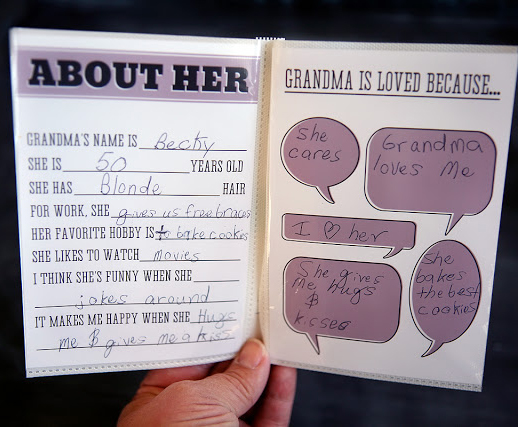 ABOUT HER
GRANDMA'S NAME IS Becky
SHE IS 50 YEARS OLD
SHE HAS Blonde HAIR
FOR WORK, SHE gives us free braces
HER FAVORITE HOBBY IS to bake cookies
SHE LIKES TO WATCH movies
I THINK SHE'S FUNNY WHEN SHE
jokes around
IT MAKES ME HAPPY WHEN SHE Hugs
me $ gives me a kiss
GRANDMA IS LOVED BECAUSE...
She
cares
Grandma
loves Me
I ♡ her
She gives
Me hugs
$
kisses
She
bakes
the best
cookies